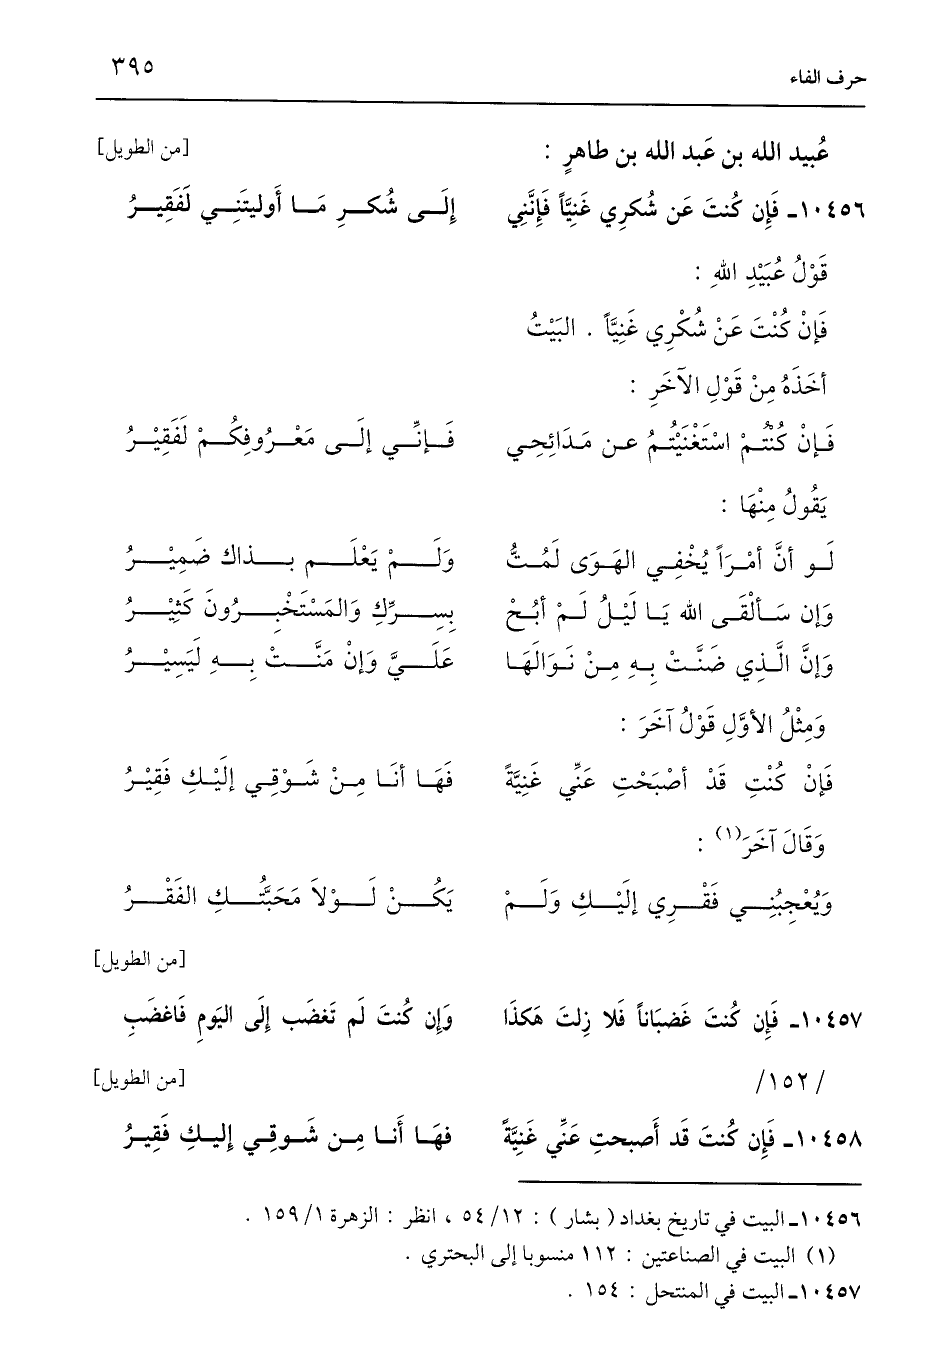 حرف الفاء ٣٩٥
عُبيد الله بن عَبد الله بن طاهرٍ : [من الطويل]
١٠٤٥٦ـ فَإِن كُنتَ عَن شُكرِي غَنِيَّاً فَإِنَّنِي إِلَى شُكرِ مَا أَوليتَنِي لَفَقِيرُ
قَوْلُ عُبَيْدِ اللهِ :
فَإنْ كُنْتَ عَنْ شُكْرِي غَنِيَّاً . البَيْتُ
أخَذَهُ مِنْ قَوْلِ الآخَرِ :
فَإنْ كُنْتُمْ اسْتَغْنَيْتُمُ عن مَدَائِحِي فَإنِّي إلَى مَعْرُوفِكُمْ لَفَقِيْرُ
يَقُولُ مِنْهَا :
لَو أنَّ أمْرَاً يُخْفِي الهَوَى لَمُتُّ وَلَمْ يَعْلَم بِذاك ضَمِيْرُ
وَإن سَألْقَى الله يَا لَيْلُ لَمْ أبُحْ بِسِرِّكِ وَالمَسْتَخْبِرُونَ كَثِيْرُ
وَإنَّ الَّذِي ضَنَّتْ بِهِ مِنْ نَوَالَهَا عَلَيَّ وَإنْ مَنَّتْ بِهِ لَيَسِيْرُ
وَمِثْلُ الأوَّلِ قَوْلُ آخَرَ :
فَإنْ كُنْتِ قَدْ أصْبَحْتِ عَنِّي غَنِيَّةً فَهَا أنَا مِنْ شَوْقِي إلَيْكِ فَقِيْرُ
وَقَالَ آخَرَ(١) :
وَيُعْجِبُنِي فَقْرِي إلَيْكِ وَلَمْ يَكُنْ لَوْلاَ مَحَبَّتُكِ الفَقْرُ
[من الطويل]
١٠٤٥٧ـ فَإِن كُنتَ غَضبَاناً فَلا زِلتَ هَكذَا وَإِن كُنتَ لَم تَغضَب إِلَى اليَومِ فَاغضَبِ
/١٥٢/ [من الطويل]
١٠٤٥٨ـ فَإِن كُنتَ قَد أَصبحتِ عَنِّي غَنِيَّةً فهَا أَنا مِن شَوقِي إِليكِ فَقِيرُ
١٠٤٥٦ـ البيت في تاريخ بغداد ( بشار ) : ٥٤/١٢ ، انظر : الزهرة ١٥٩/١ .
(١) البيت في الصناعتين : ١١٢ منسوبا إلى البحتري .
١٠٤٥٧ـ البيت في المنتحل : ١٥٤ .